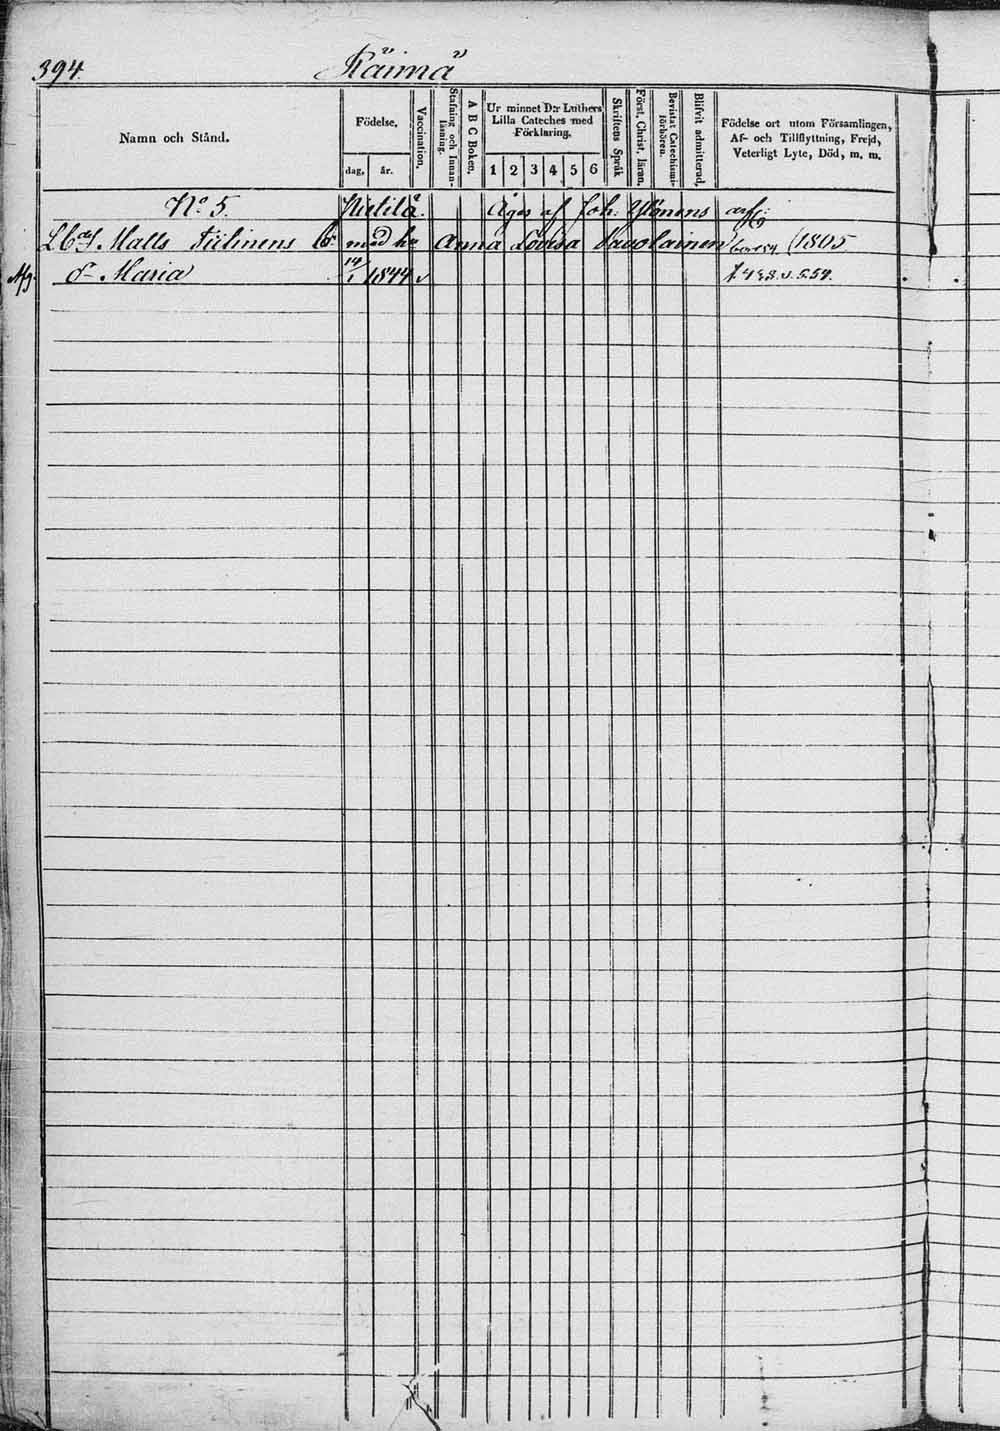 394 Räimä
Namn och Stånd.
Födelse,
dag,
år.
Vaccination.
Stafning och Innan-
läsning.
A B C Boken.
Ur minnet D:r Luthers
Lilla Cateches med
Förklaring.
1 2 3 4 5 6
Skriftens Språk
Först. Christ. läran.
Bevistat Catechismi-
förhören.
Blifvit admitterad.
Födelse ort utom Församlingen,
Af- och Tillflyttning, Frejd,
Veterligt Lyte, Död, m. m.
N:o 5. Äges af Joh.
Matts med Anna Lovisa Savolainen (1805
Maria 14/1 1844 v